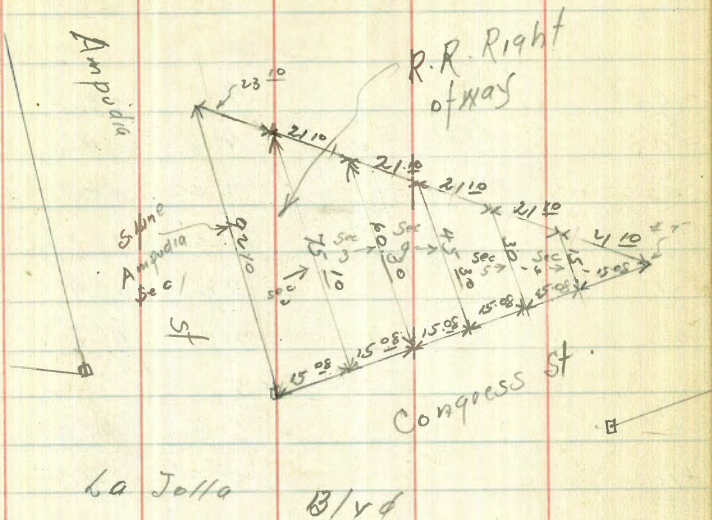 Ampudia
23 10
R.R. Right
of way
21 10
21 10
21 10
21 10
21 10
S. line
Ampudia
Sec 1
St
92 10
Sec 2
75 10
Sec 3
60 30
Sec 4
45 30
Sec 5
30
15
15.08
15.08
15.08
15.08
15.08
15.08
Congress St.
La Jolla
Blvd